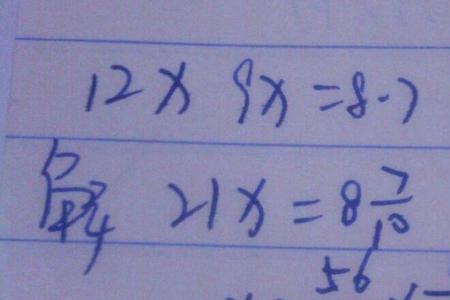 12x 9x=8.7
解 21x=8 7/10
56